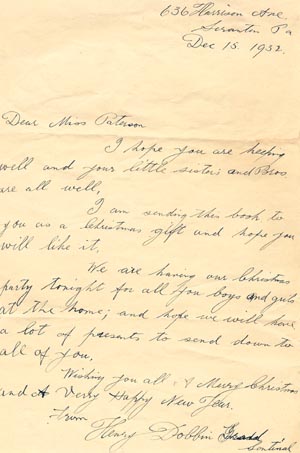 636 Harrison Ave.
Scranton Pa
Dec 15. 1932.
Dear Miss Paterson
I hope you are keeping
well and your little sisters and Bros
are all well.
I am sending this book to
you as a Christmas gift and hope you
will like it.
We are having our Christmas
party tonight for all you boys and girls
at the home; and hope we will have
a lot of presents to send down to
all of you.
Wishing you all A Merry Christmas
and A Verry Happy New Year.
From
Henry Dobbin Grand
Sentinal